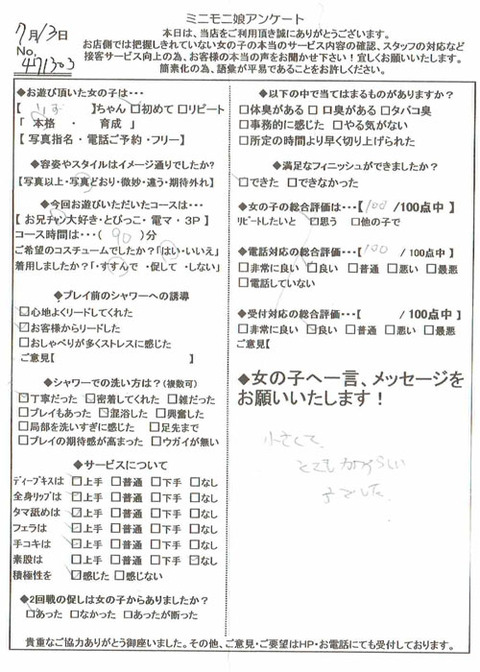 ミニモニ娘アンケート
7月13日
No.
471303
本日は、当店をご利用頂き誠にありがとうございます。
お店側では把握しきれていない女の子の本当のサービス内容の確認、スタッフの対応など
接客サービス向上の為、お客様の本当の声をお聞かせ下さい！宜しくお願いいたします。
簡素化の為、語彙が平易であることをお許しください。
◆お遊び頂いた女の子は…
【 】ちゃん□初めて□リピート
「 本格 ・ 育成 」
【 写真指名・電話ご予約・フリー】
◆容姿やスタイルはイメージ通りでしたか?
【写真以上・写真どおり・微妙・違う・期待外れ】
◆今回お遊びいただいたコースは…
【 お兄チャン大好き・とびっこ・電マ・3P】
コース時間は…( 90 )分
ご希望のコスチュームでしたか？「はい・いいえ」
着用しましたか？「・すすんで ・促して ・しない」
◆プレイ前のシャワーへの誘導
□心地よくリードしてくれた
☑お客様からリードした
□おしゃべりが多くストレスに感じた
ご意見【 】
◆シャワーでの洗い方は？(複数可)
☑丁寧だった ☑密着してくれた □雑だった
□プレイもあった ☑混浴した □興奮した
□局部を洗いすぎに感じた □足先まで
□プレイの期待感が高まった □ウガイが無い
◆サービスについて
ディープキスは ☑上手 □普通 □下手 □なし
全身リップは ☑上手 □普通 □下手 □なし
タマ舐めは ☑上手 □普通 □下手 □なし
フェラは ☑上手 □普通 □下手 □なし
手コキは ☑上手 □普通 □下手 □なし
素股は □上手 □普通 □下手 ☑なし
積極性を ☑感じた □感じない
◆2回戦の促しは女の子からありましたか？
□あった □なかった □あったが断った
◆以下の中で当てはまるものがありますか？
□体臭がある □ 口臭がある □タバコ臭
□事務的に感じた □ やる気がない
□所定の時間より早く切り上げられた
◆満足なフィニッシュができましたか？
□できた □できなかった
◆女の子の総合評価は…【 100 /100点中 】
リピートしたいと □思う □他の子で
◆電話対応の総合評価…【 100 / 100点中】
□非常に良い □良い □普通 □悪い □最悪
□電話していない
◆受付対応の総合評価…[ /100点中]
□非常に良い ☑良い □普通 □悪い □最悪
ご意見【
◆女の子へ一言、メッセージを
お願いいたします！
小さくて、
とてもかわいらしい
子でした。
貴重なご協力ありがとう御座いました。その他、ご意見・ご要望はHP・お電話にても受付しております。